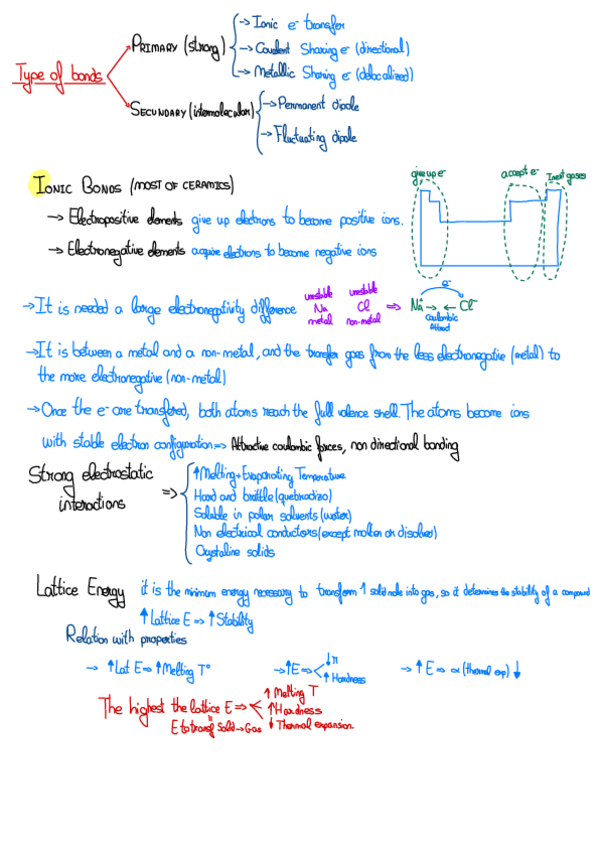 Type of bonds
PRIMARY (strong)
→ Ionic e⁻ transfer
→ Covalent Sharing e⁻ (directional)
→ Metallic Sharing e⁻ (delocalized)
SECUNDARY (intermolecular)
→ Permanent dipole
→ Fluctuating dipole
IONIC BONDS (MOST OF CERAMICS)
→ Electropositive elements give up electrons to become positive ions.
→ Electronegative elements acquire electrons to become negative ions
give up e⁻
accept e⁻
Inert gases
→ It is needed a large electronegativity difference
unestable unestable
Na Cl
metal non-metal
⇒ Na⁺ → ← Cl⁻
e⁻
coulombic
attract
→ It is between a metal and a non-metal, and the transfer goes from the less electronegative (metal) to
the more electronegative (non-metal)
→ Once the e⁻ are transfered, both atoms reach the full valence shell. The atoms become ions
with stable electron configuration ⇒ Attractive coulombic forces, non directional bonding
Strong electrostatic
interactions ⇒
↑ Melting + Evaporating Temperature
Hard and brittle (quebradizo)
Soluble in polar solvents (water)
Non electrical conductors (except molten or disolved)
Crystaline solids
Lattice Energy it is the minimum energy necessary to transform 1 solid mole into gas, so it determines the stability of a compound
↑ Lattice E ⇒ ↑ Stability
Relation with properties
→ ↑ Lat E ⇒ ↑ Melting Tº
→ ↑ E ⇒
↑ Hardness
→ ↑ E ⇒ α (thermal exp) ↓
The highest the lattice E ⇒
↑ Melting T
↑ Hardness
↓ Thermal expansion.
E to transf solid → Gas